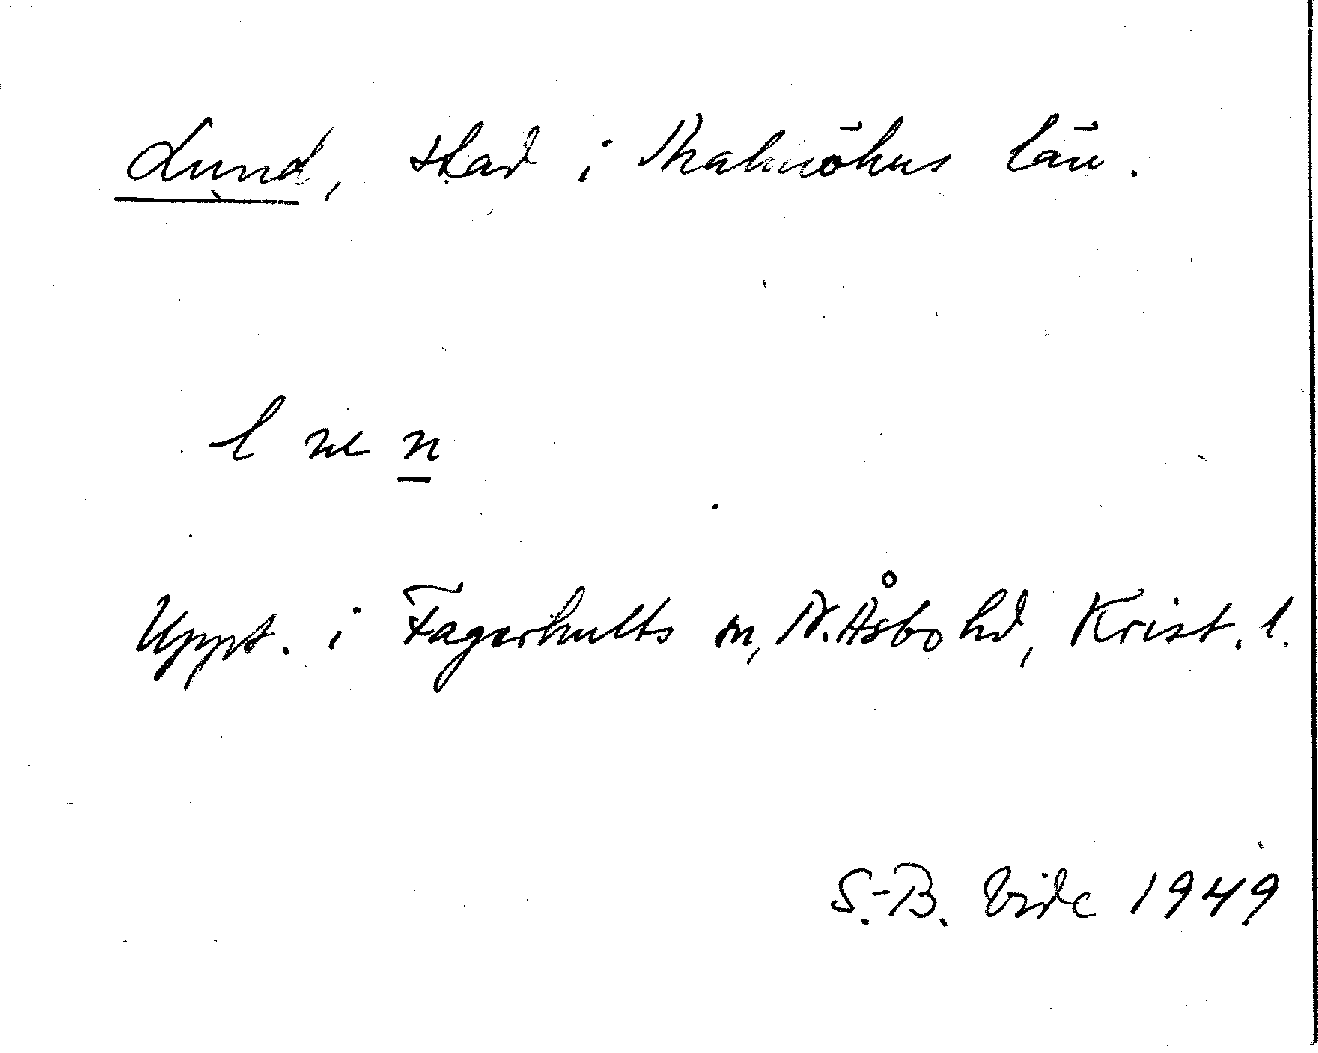 Lund, stad i Malmöhus län.
Uppt. i Fagerhults sn, N. Åsbo hd, Krist. l.
S.-B. Vide 1949